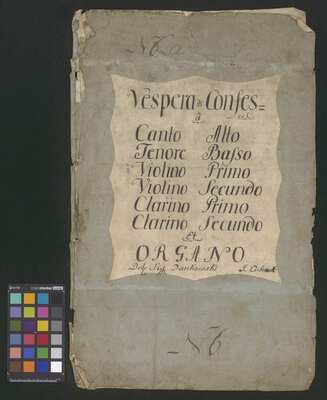 Vespera de Confes=
à
Canto Alto
Tenore Basso
Violino Primo
Violino Secundo
Clarino Primo
Clarino Secundo
Et
ORGANO
Del Sig.